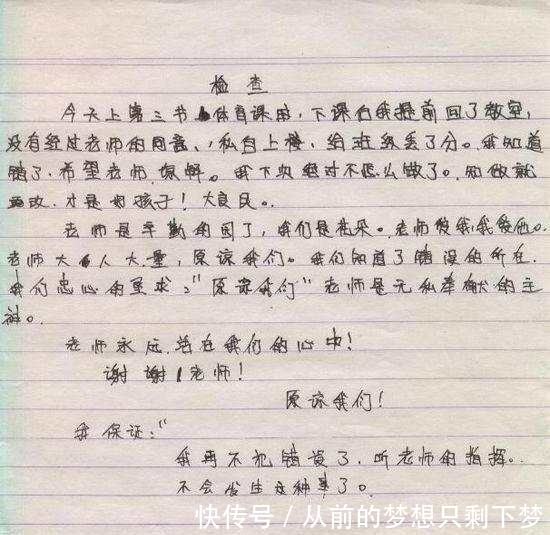 检查
今天上第三节体育课时,下课后我提前回了教室,
没有经过老师的同意,私自上楼,给班级丢了分。我知道
错了,希望老师原解。我下次绝对不怎么做了。知做就
改,才是好孩子!大良民。
老师是辛勤的园丁,我们是花朵。老师爱我,我爱他。
老师大人大量,原谅我们。我们知道了错误的所在,
我们忠心的要求:"原谅我们"老师是无私奉献的主
神。
老师永远活在我们的心中!
谢谢老师!
原谅我们!
我保证:"
我再不犯错误了,听老师的指挥。
不会发生这种事了。
快传号/从前的梦想只剩下梦